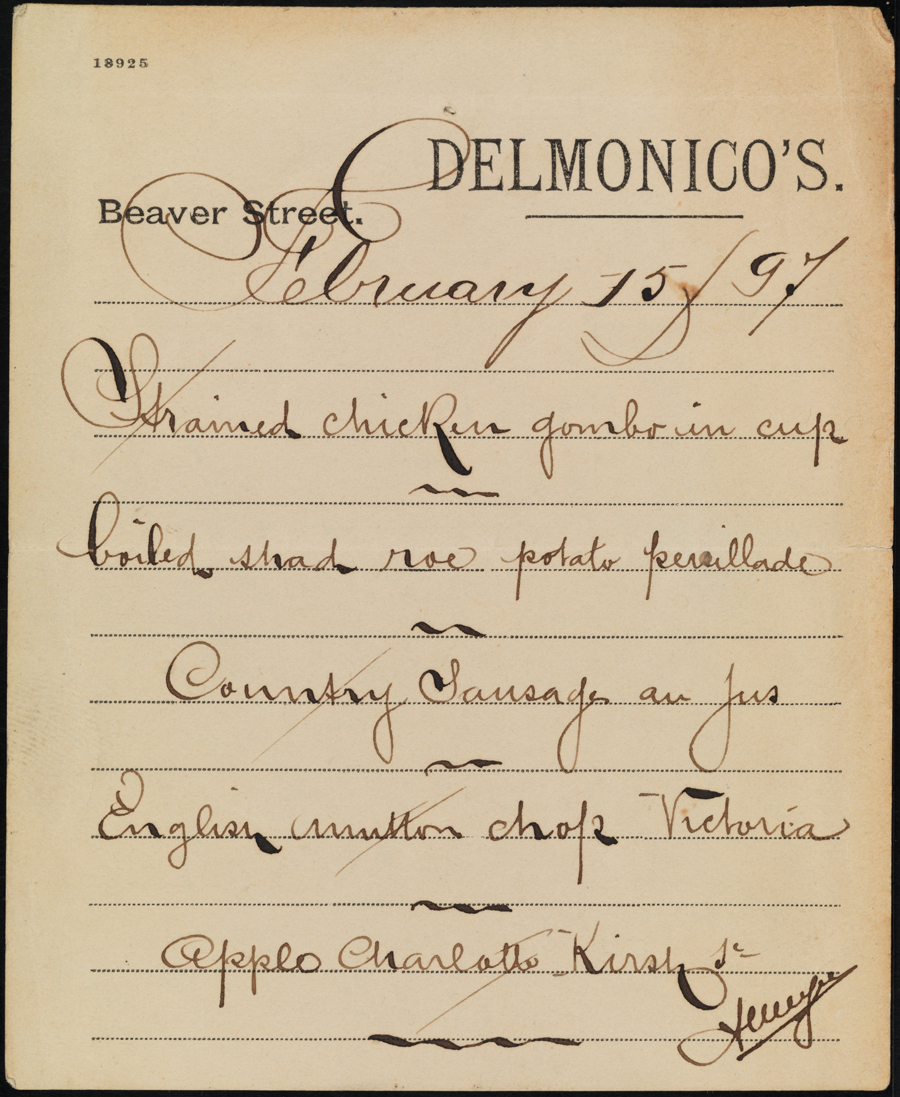 18925
DELMONICO'S.
Beaver Street.
February 15/97
Strained chicken gombo in cup
boiled shad roe potato persillade
Country Sausage au jus
English mutton chop Victoria
Apple Charlotte Kirsh sc